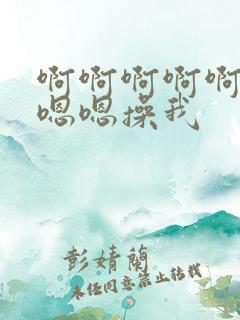 啊啊啊啊啊
嗯嗯操我
彭婧蘭
未任同意禁止转载